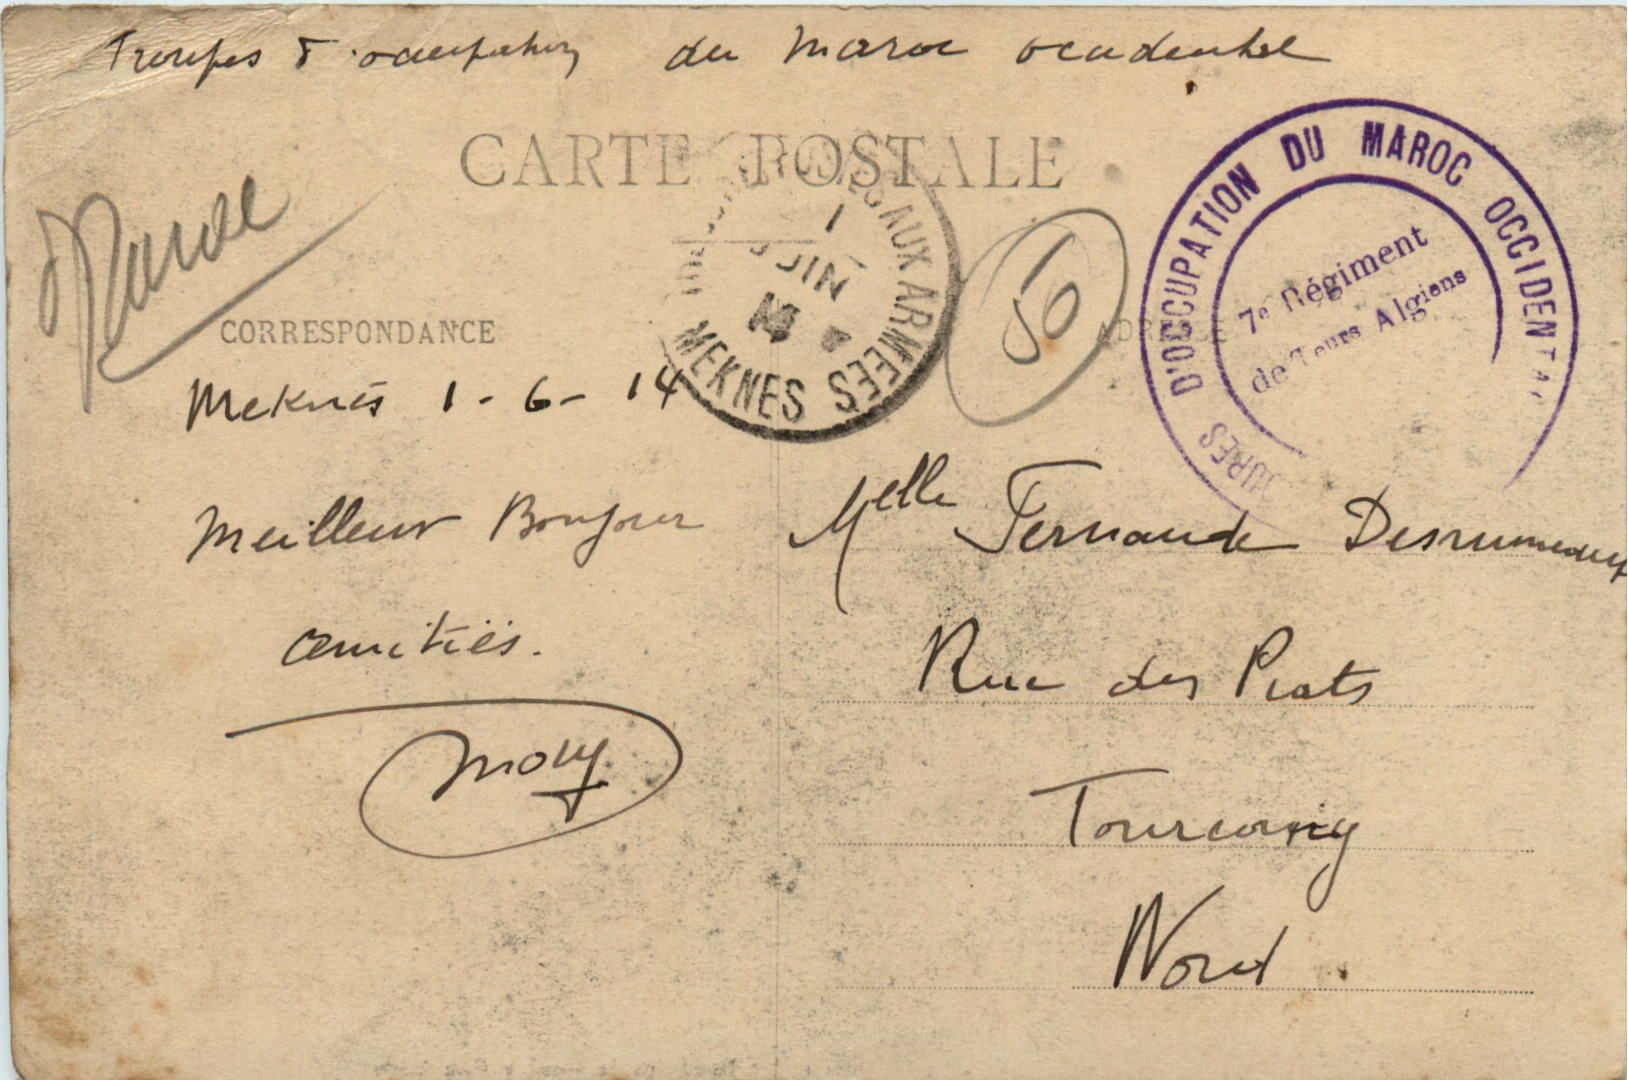 Troupes d'occupation du Maroc occidental
CARTE POSTALE
Maroc
CORRESPONDANCE
AUX ARMEES
1
JUIN
14
MEKNES
56
D'OCCUPATION DU MAROC OCCIDENTAL
7e Régiment
de Algiens
ADRESSE
Meknès 1-6-14
Meilleur Bonjour
amitiés.
Melle Fernande Desrumeaux
Rue des Piats
Tourcoing
Nord